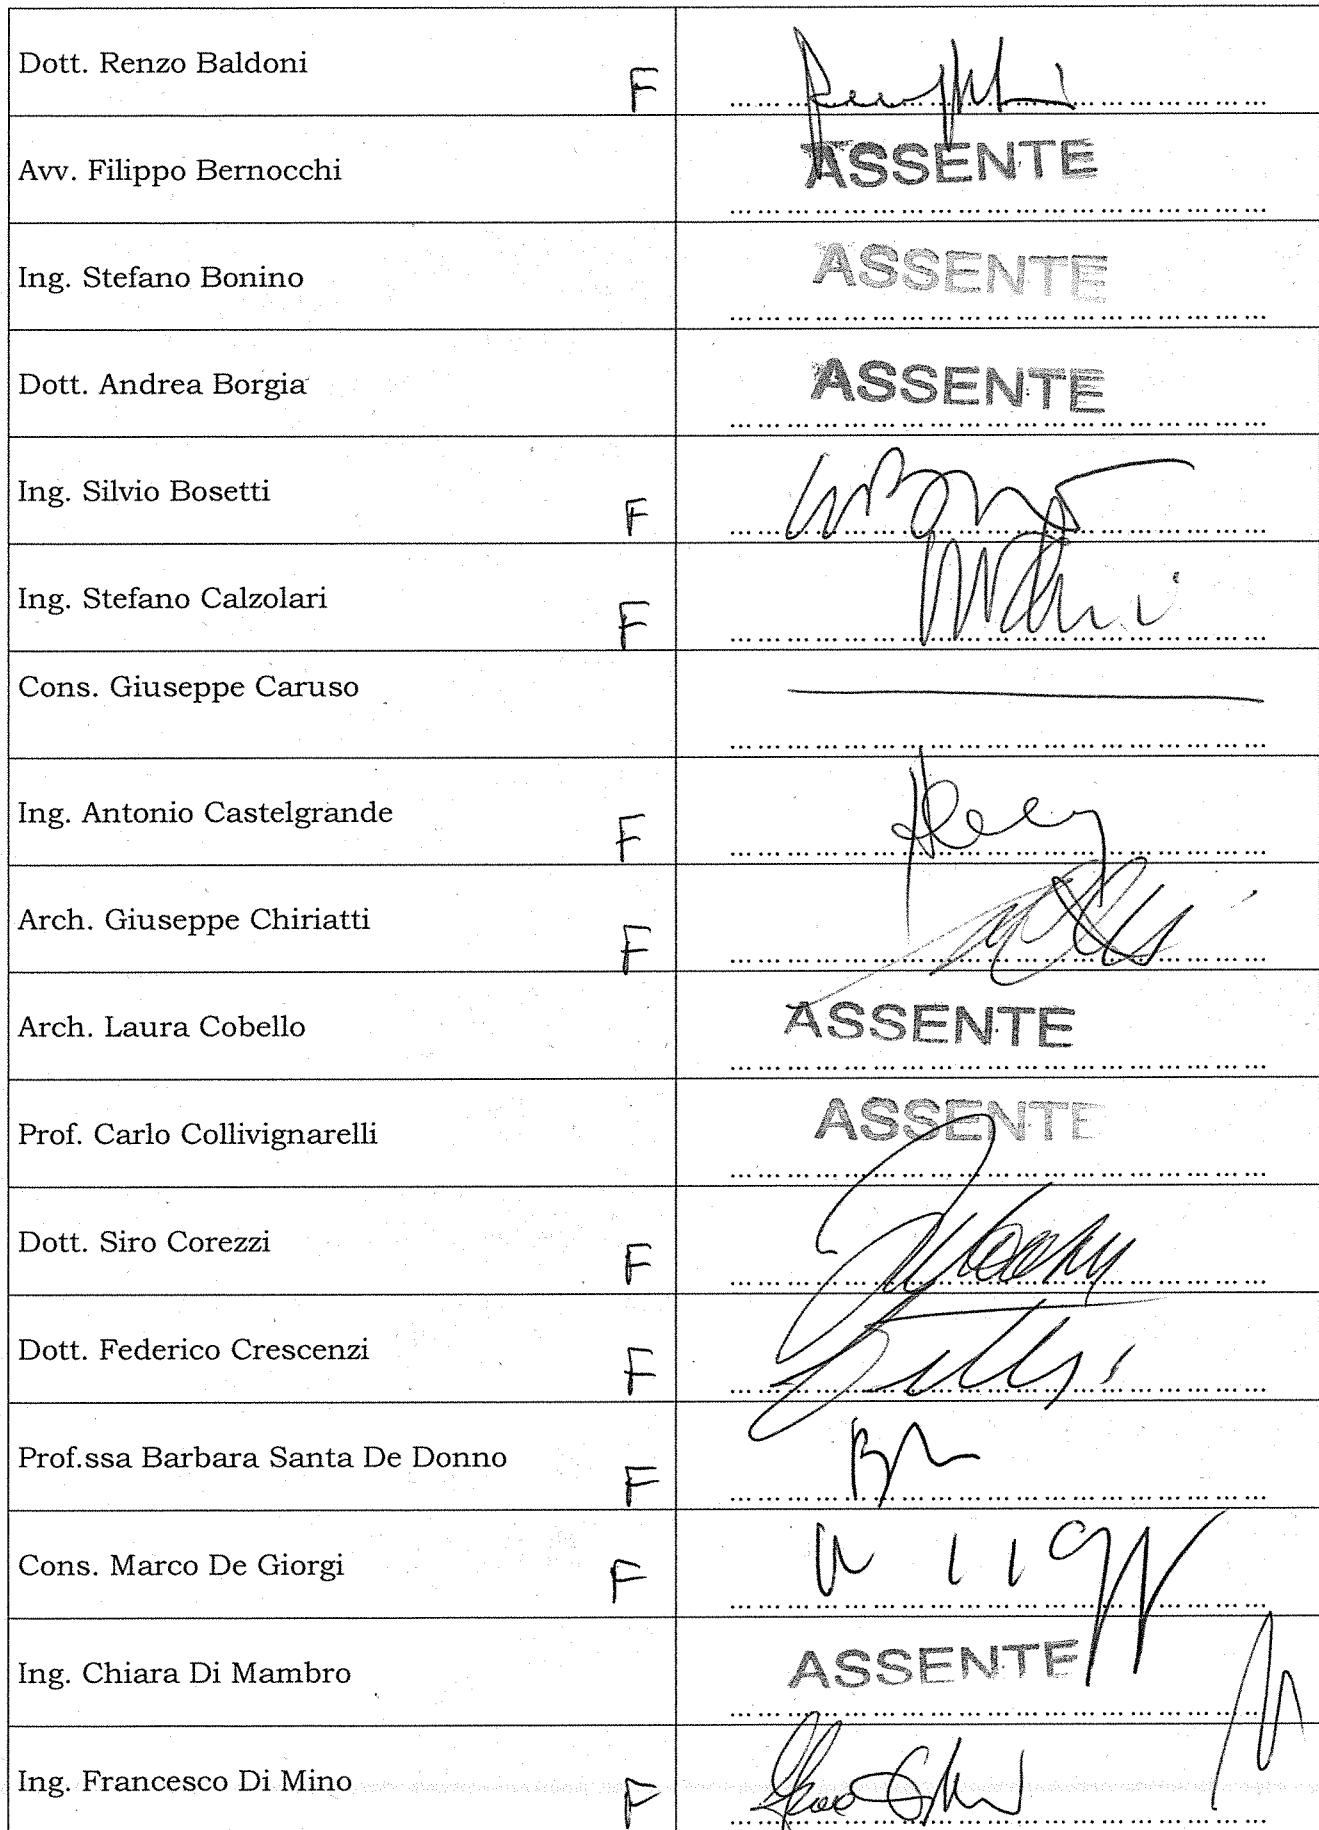 Dott. Renzo Baldoni F
Avv. Filippo Bernocchi ASSENTE
Ing. Stefano Bonino ASSENTE
Dott. Andrea Borgia ASSENTE
Ing. Silvio Bosetti F
Ing. Stefano Calzolari F
Cons. Giuseppe Caruso
Ing. Antonio Castelgrande F
Arch. Giuseppe Chiriatti F
Arch. Laura Cobello ASSENTE
Prof. Carlo Collivignarelli ASSENTE
Dott. Siro Corezzi F
Dott. Federico Crescenzi F
Prof.ssa Barbara Santa De Donno F
Cons. Marco De Giorgi F
Ing. Chiara Di Mambro ASSENTE
Ing. Francesco Di Mino F